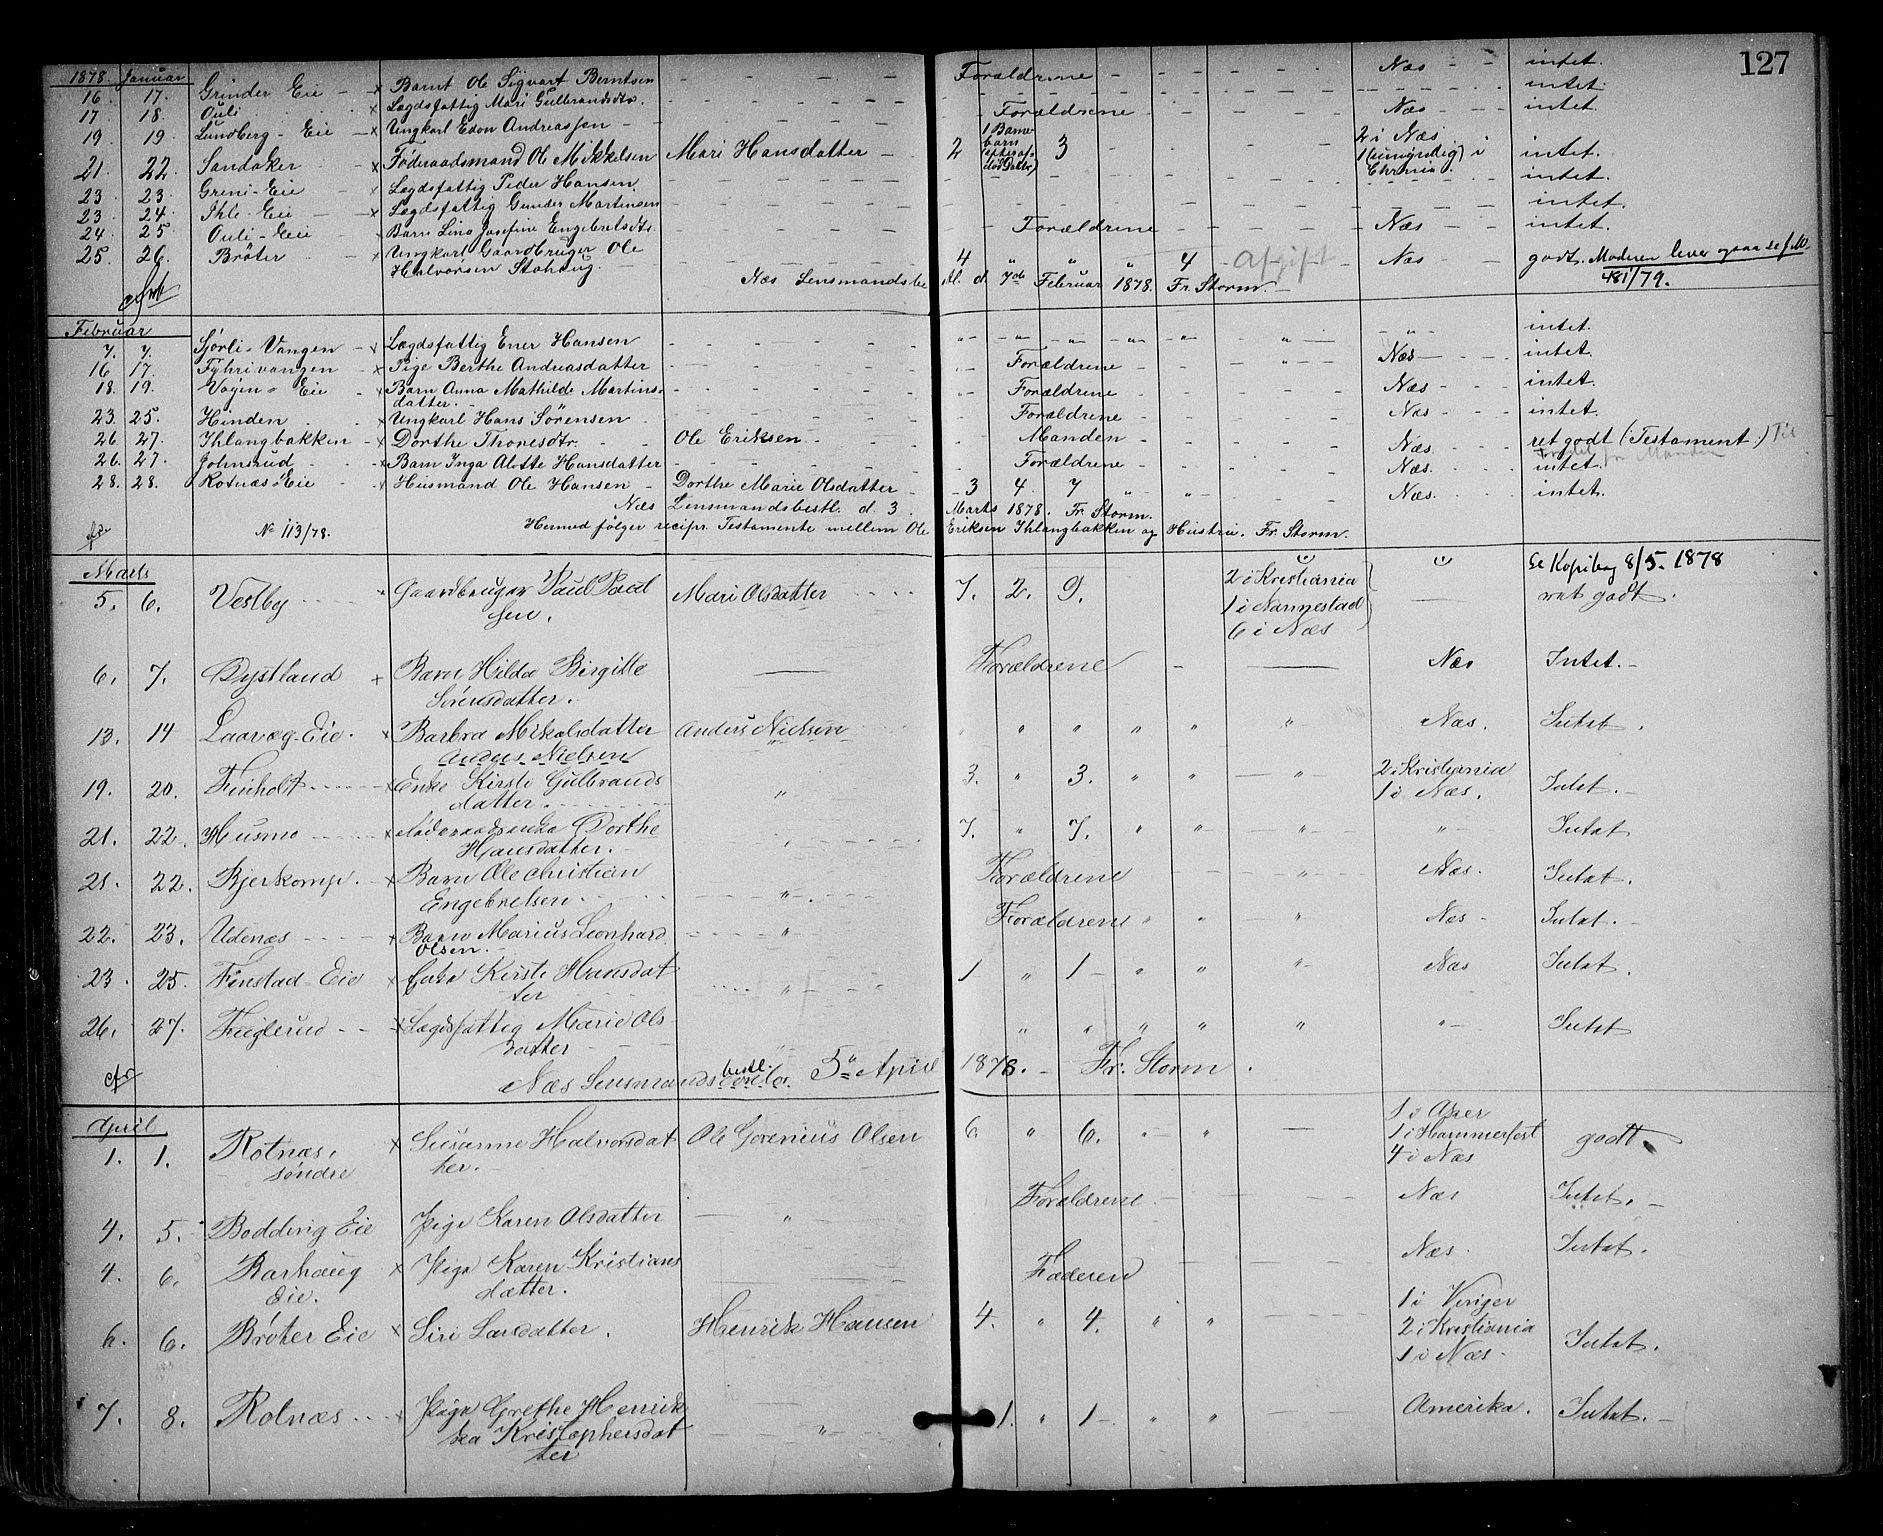 127
1878. Januar
16 17. Grinder Eie x Barnt Ole Sigvart Berntsen Forældrene Næs intet.
17 18. Ouli x Lægdsfattig Mari Gulbrandsdtr. intet.
19 19. Lundberg - Eie x Ungkarl Edon Andreassen Forældrene Næs intet.
21 22. Sandaker x Føderaadsmand Ole Mikkelsen Mari Hansdatter 2 1 Barne 3 2 i Næs intet.
barn 1 (umyndig) i
Chrnia.
23 23. Greni-Eie x Lægdsfattig Peder Hansen. intet.
23 24. Ihle-Eie x Lægdsfattig Gunder Martinsen intet.
24 25 Ouli-Eie x Barn Lina Josefine Engebretsdtr. Forældrene Næs intet.
25. 26. Brøter x Ungkarl Gaardbruger Ole 4 " " " 4 Afgift Næs godt. Moderen lever
Halvorsen Stohaug 481/79.
Næs Lensmandsbe st. d. 7de Februar 1878. Fr. Storm.
Februar
7. 7. Sjørli-Vangen x Lægdsfattig Ener Hansen intet.
16 17. Fyhrivangen x Pige Berthe Andreasdatter Forældrene Næs intet.
18. 19. Vøyen-Eie Barn Anna Mathilde Martins- Forældrene Næs intet.
datter.
23. 25. Hinden x Ungkarl Hans Sørensen Forældrene Næs intet.
26 27. Ihlangbakken x Dorthe Thoresdtr. Ole Eriksen Manden Næs. ret godt (Testament.) Til
fr Manden
26. 27. Johnsrud x Barn Inga Alotte Hansdatter Forældrene Næs. intet.
28. 28. Rotnæs-Eie x Husmand Ole Hansen Dorthe Marie Olsdatter 3 4 7 " " Næs. intet.
Næs Lensmandsbestl. d. 3. Marts 1878. Fr Storm.
No 113/78. Hermed følger recipr. Testamente mellem Ole Eriksen Ihlangbakken og Hustru. Fr. Storm.
Marts
Se Kopibog 8/5-1878
5. 6. Vestby x Gaardbruger Paul Paul Mari Olsdatter 7. 2. 9. 2 i Kristiania ret godt.
sen. 1 i Nannestad
6 i Næs
6. 7. Dystland x Barn Hilda Birgitte Forældrene Næs Intet.
Sørensdatter.
13. 14 Laavæg-Eie. x Barbra Mikalsdatter Anders Nielsen " " " " " Næs. Intet.
Anders Nielsen
19. 20. Finholt x Enke Kirsti Gulbrands 3. " 3. " " " 2 i Kristiania Intet.
datter. 1 i Næs.
21. 22. Husmo x Føderaadsenke Dorthe 7. " 7. " " " " Intet
Hansdatter.
21. 22. Bjerkomp. x Barn Ole Christian Forældrene " Næs. Intet.
Engebretsen. "
22. 23. Udenæs x Barn Marius Leonhard " Forældrene " " " Næs Intet.
Olsen.
23. 25. Finstad-Eie x Enke Kirsti Hansdat 1 " 1 " " " Næs Intet.
ter "
26. 27. Fuglerud x Lægdsfattig Marie Ols " " " " " " Intet
datter
Næs Lensmandsbestl. 5te April 1878. Fr. Storm.
April
1. 1. Rotnæs, x Susanne Halvorsdat Ole Gorenius Olsen 6. " 6. " " 1 i Aker godt.
søndre ter. 1 i Hammerfest
4 i Næs
4. 5. Bodding Eie Pige Karen Olsdatter " Forældrene Næs Intet.
4. 6. Rarhaug x Pige Karen Kristians Faderen Næs. Intet.
Eie. datter.
6. 6. Brøter Eie x Siri Larsdatter. Henrik Hansen 4. " 4. " " 1 i Vinger
2 i Kristiania Intet.
1 i Næs.
7. 8. Rotnæs x Pige Grethe Henrik 1. " 1 " " Amerika. Intet.
ka Kristophersdat "
ter